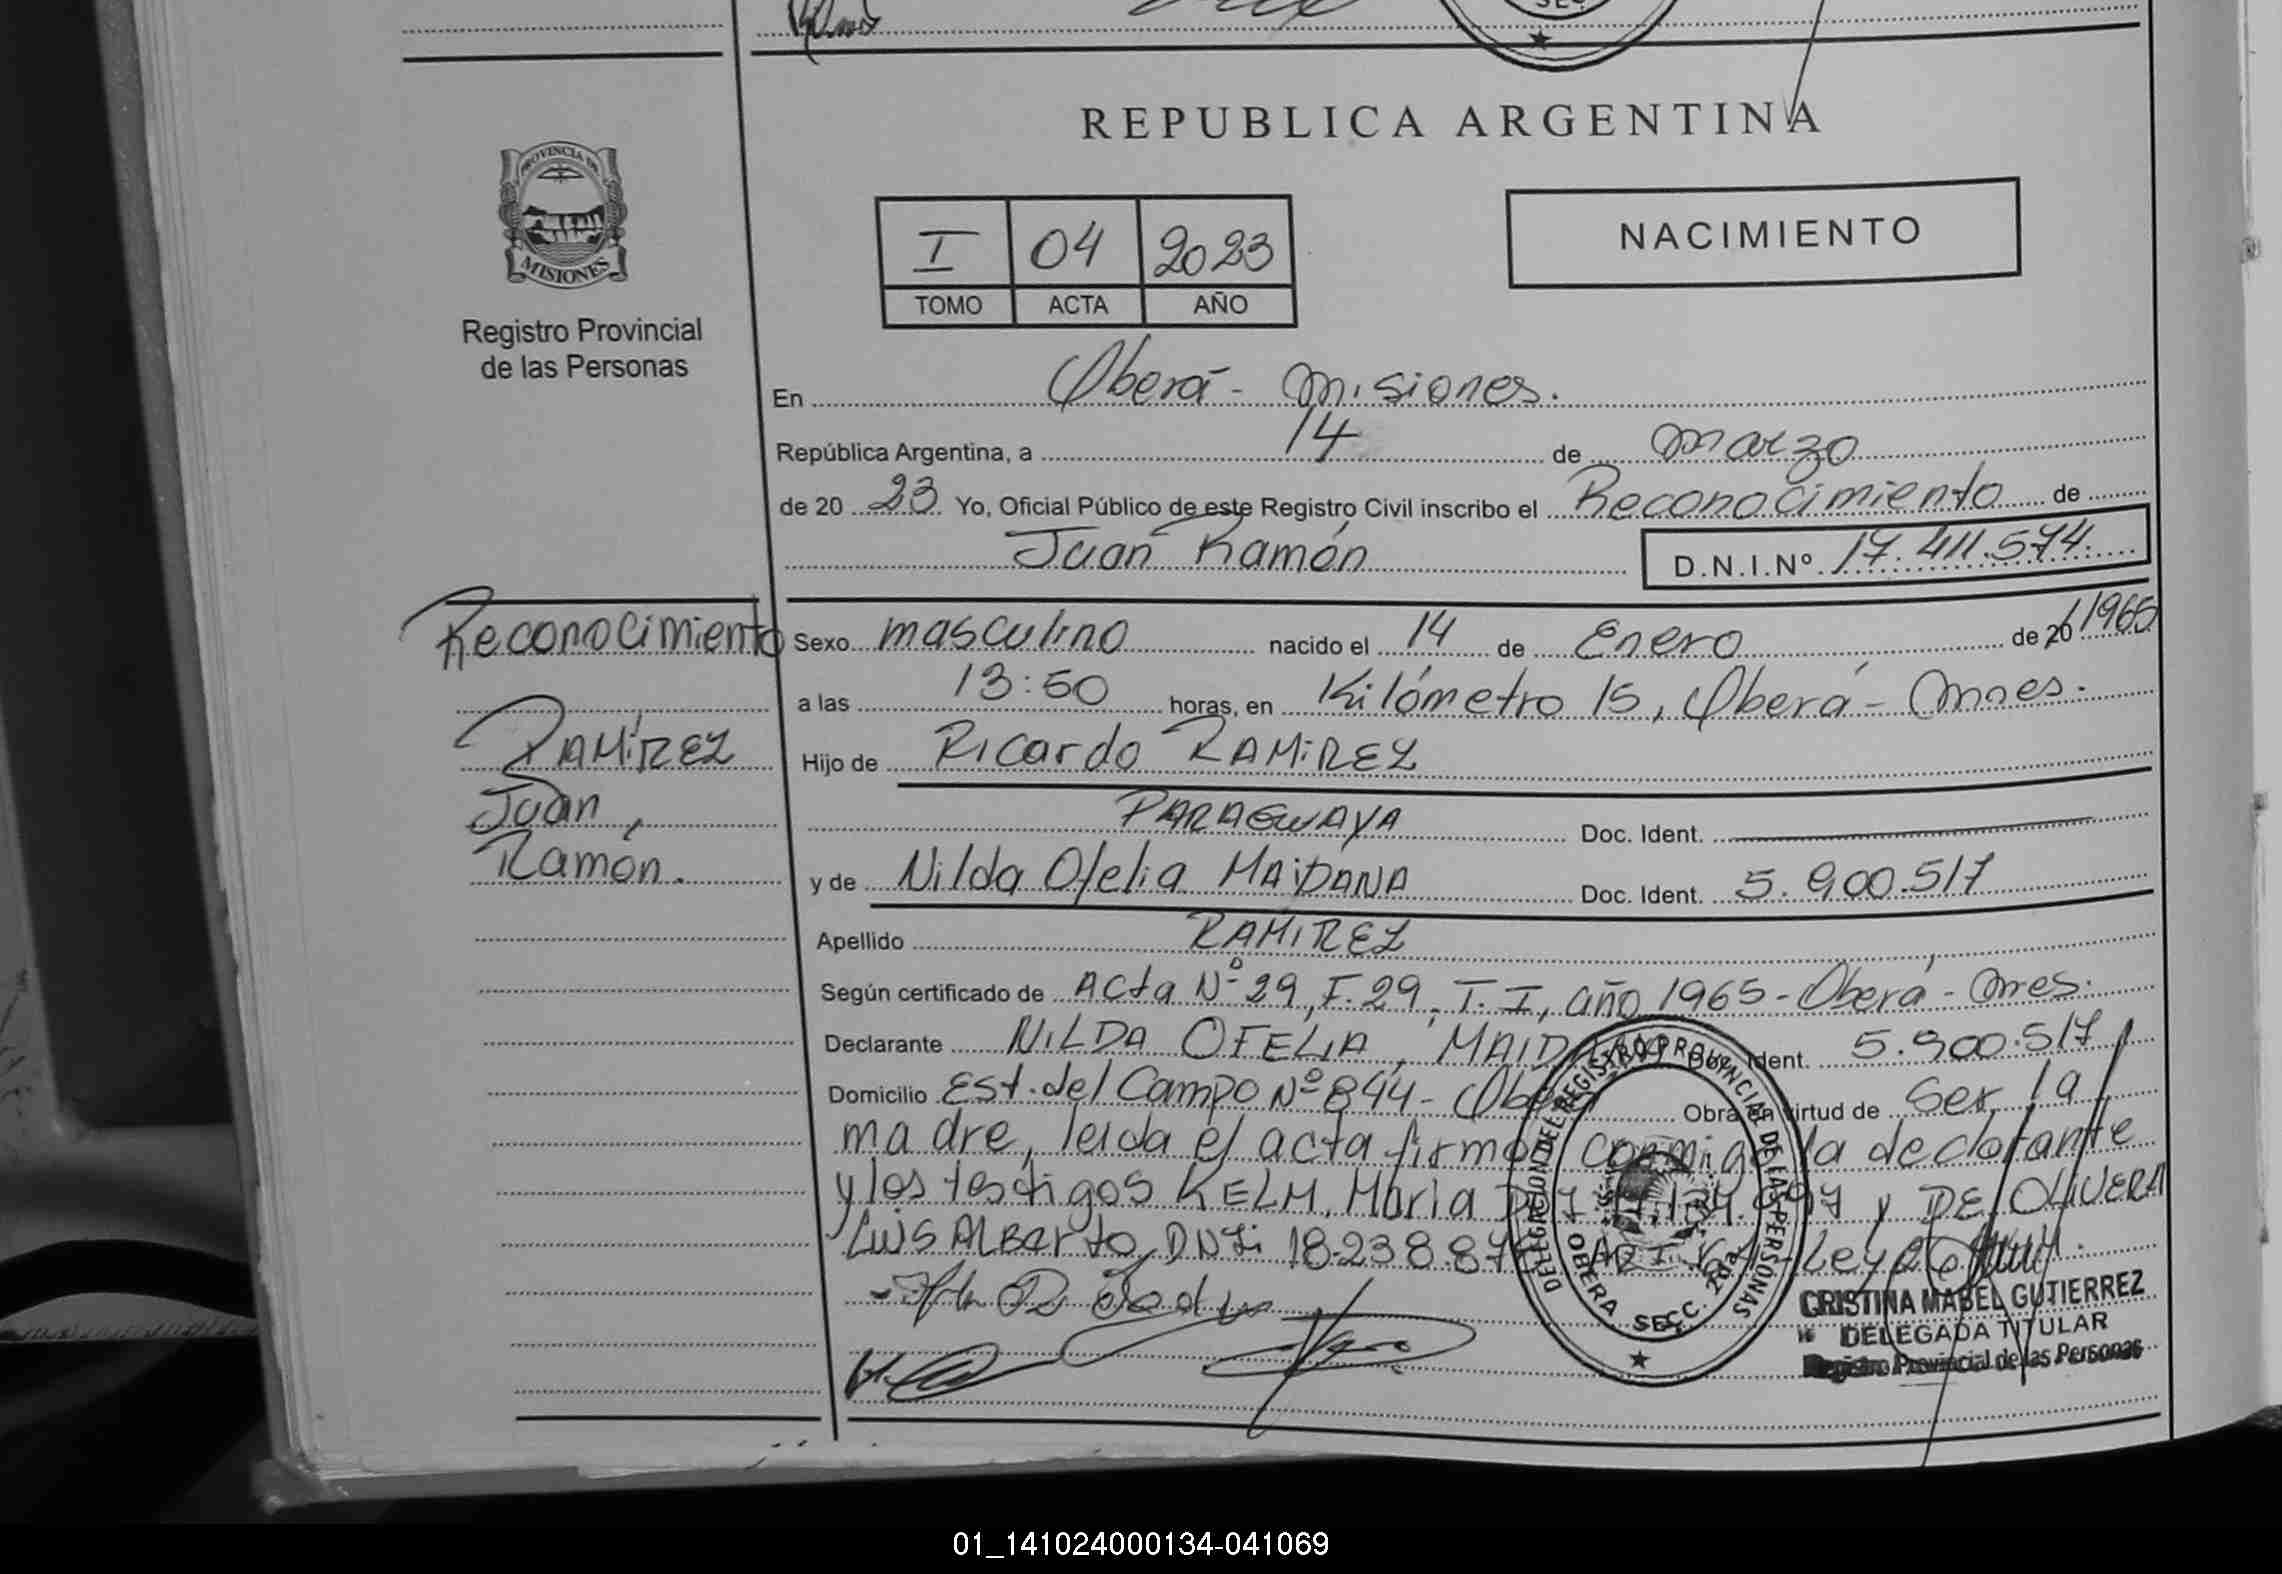 REPUBLICA ARGENTINA
PROVINCIA DE
MISIONES
Registro Provincial
de las Personas
I 04 2023
TOMO ACTA AÑO
NACIMIENTO
En Oberá - Misiones.
República Argentina, a 14 de Marzo
de 20 23 Yo, Oficial Público de este Registro Civil inscribo el Reconocimiento de
Juan Ramón D.N.I.Nº 17.411.574
Reconocimiento
RAMÍREZ
Juan
Ramón.
Sexo masculino nacido el 14 de Enero de 20 1965
a las 13:50 horas, en Kilómetro 15, Oberá - Mnes.
Hijo de Ricardo RAMIREZ
PARAGUAYA Doc. Ident.
y de Nilda Ofelia MAIDANA Doc. Ident. 5.900.517
Apellido RAMIREZ
Según certificado de Acta Nº 29, F. 29, T. I, año 1965 - Oberá - Mnes.
Declarante NILDA OFELIA, Doc. Ident. 5.900.517
Domicilio Est. del Campo Nº 844 - Oberá Obra en virtud de Ser la
madre, leida el acta firman conmigo la declarante
y los testigos KELM, María y DE OLIVERA
Luis Alberto, DNI: 18.238.87 Ley
DELEGACION DEL REGISTRO PROVINCIAL DE LAS PERSONAS
OBERA SECC. 2da
CRISTINA MABEL GUTIERREZ
DELEGADA TITULAR
Registro Provincial de las Personas
01_141024000134-041069